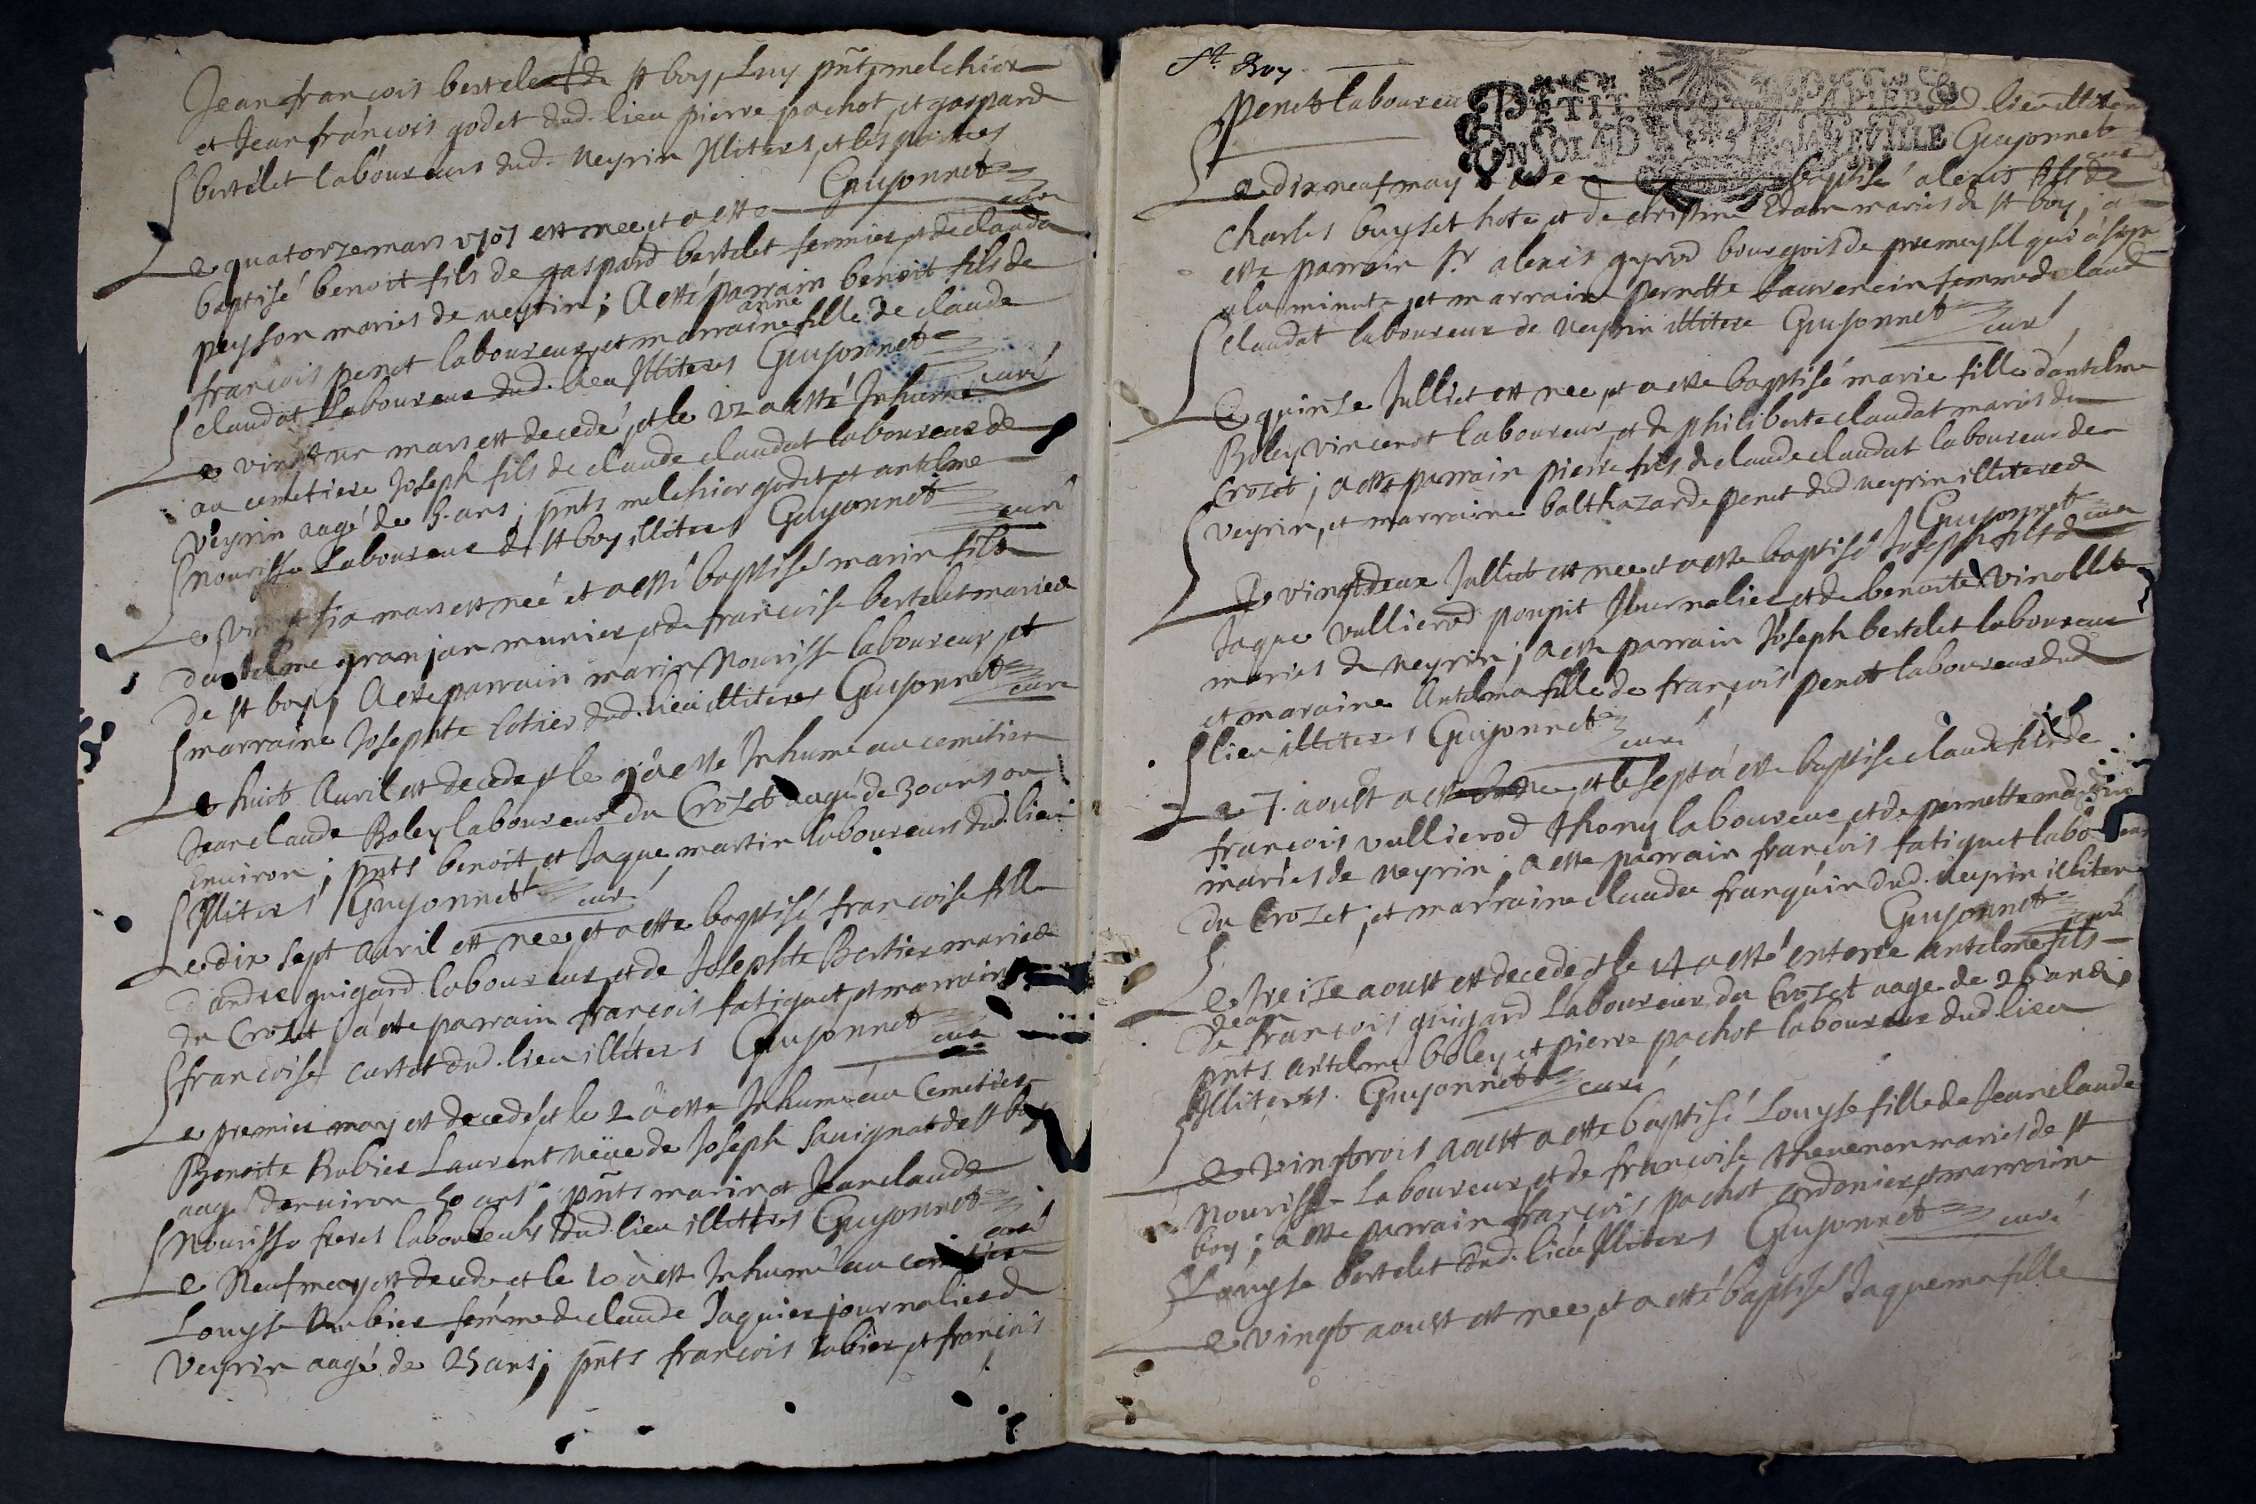 Jean françois bertelet de st boys, Luy pñts melchior
et Jean françois godet dud. lieu pierre pachot, et gaspard
bertelet laboureurs dud. veyrin Illiteres, et les parties
Guyonnet curé
Le quatorze mars 1701 est nee et a esté
baptisé benoit fils de gaspard bertelet fermier, et de clauda
peysson mariés de veyrin; A esté parrain benoit fils de
françois penet laboureur, et marraine anne fille de claude
claudat Laboureur dud. lieu Illiteres Guyonnet curé
Le vingt un mars est decedé, et le 22 a esté Inhumé
au cemetiere Joseph fils de claude claudat laboureur de
veyrin aagé de 5. ans; pñts melchior godet et antelme
Nourisse Laboureur de st boys illiteres Guyonnet curé
Le vingt six mars est neé et a esté baptisé marin fils
d'antelme granjan munier, et de françoise bertelet mariés
de st boys; A esté parrain marin Nourisse laboureur, et
marraine Josephte Cotier dud. lieu illiteres Guyonnet curé
Le huict Avril est decede, et le 9 a esté Inhumé au cemetiere
Jean claude Boley laboureur du Crozet aagé de 30 ans ou
environ; pñts benoit et Jaque martin laboureurs dud. lieu
Illiteres Guyonnet curé
Le dix sept avril est nee, et a esté baptisé françoise fille
d'andre guigard laboureur, et de Josephte Bertier mariés
du Crozet; a esté parrain françois fatiguet, et marraine
françoise curtet dud. lieu illiteres Guyonnet curé
Le premier may est decedé, et le 2 a esté Inhumé au Cemetiere
Benoite Rubier Laurent veüe de Joseph Savignat de st boys
aagé d'environ 50 ans; pñts marin et Jean claude
Nourisse freres laboureurs dud. lieu illiteres Guyonnet curé
Le Neuf may est decede, et le 10 a esté Inhumé au cemetiere
Louyse Rubier femme de claude Jaquier journalier de
veyrin aagé de 25 ans; pñts françois Rubier, et françois
St. Boys
Penet laboureur lieu illiteres
PETIT PAPIER
UN SOL 4 D LA FEVILLE
Guyonnet curé
Le dix neuf may baptisé alexis fils de
Charles buyset hote, et de christine Edouar mariés de st boys; a
esté parrain Sr. alexis guyrod bourgois de premeysel qui a signé
a la minute, et marraine pernette Laurencin femme de claude
claudat laboureur de veyrin illitere Guyonnet curé
Le quinze Julliet est nee, et a esté baptisé marie fille d'antelme
Boley vincent laboureur, et de philiberte claudat mariés du
Crozet; a esté parrain pierre fils de claude claudat laboureur de
veyrin, et marraine balthazarde penet dud. veyrin illiteres
Guyonnet curé
Le vingt deux Julliet est nee et a esté baptisé Joseph fils de
Jaque vullierod poupit Journalier et de benoite vinollet
mariés de veyrin; a esté parrain Joseph bertelet laboureur
et maraine Antelma fille de françois penet laboureur dud.
lieu illiteres Guyonnet curé
Le 7. aoust a esté nee, et le sept a esté baptisé claude fils de
françois vullierod thony laboureur, et de pernette martin
mariés de veyrin; a esté parrain françois fatiguet laboureur
du Crozet, et marraine clauda franquin dud. veyrin illiteres
Guyonnet curé
Le treize aoust est decede, et le 14 a esté enterré antelme fils
de Jean françois guigard Laboureur du Crozet aagé de 26 ans;
pñts antelme boley et pierre pachot laboureur dud. lieu
Illiteres. Guyonnet curé
Le vingtrois aoust a esté baptisé Louyse fille de Jean claude
Nourisse Laboureur, et de françoise thevenon mariés de st
boys; a esté parrain françois pachot cordonier, et marraine
Louyse bertelet dud. lieu Illiteres Guyonnet curé
Le vingt aoust est nee, et a esté baptisé Jaquema fille